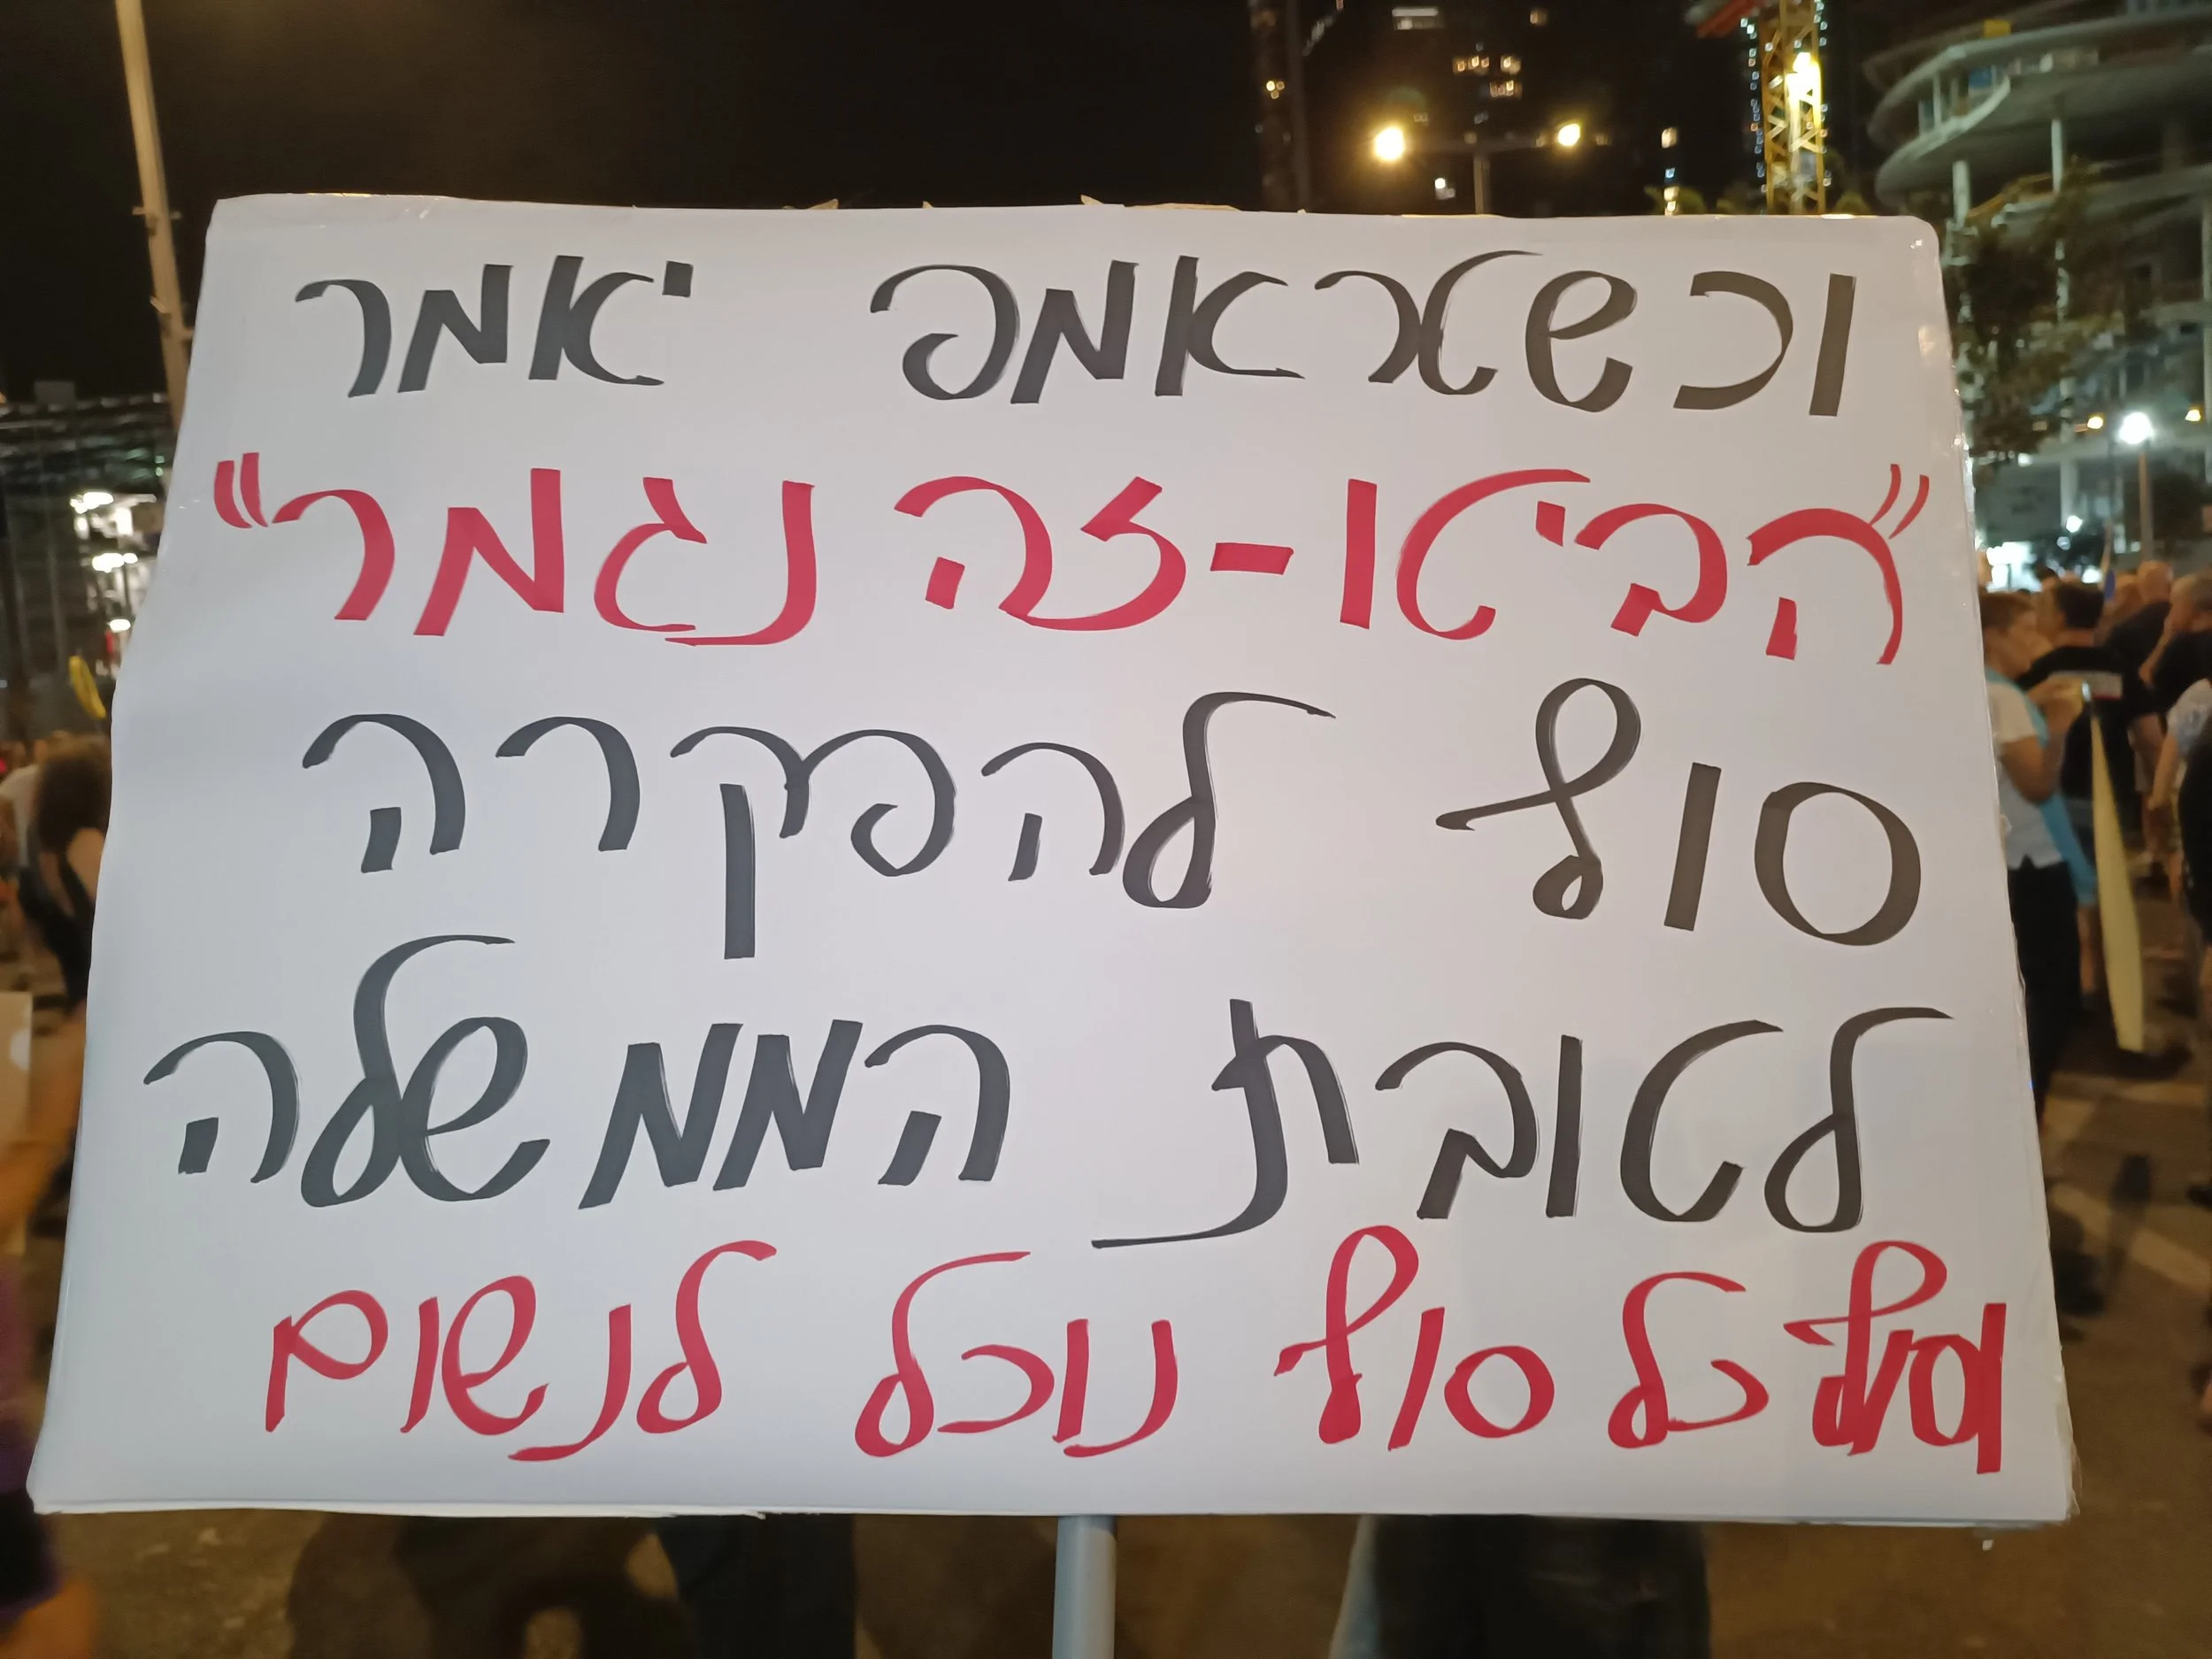 וכשטראמפ יאמר
"הביטו-זה נגמר"
סוף להפקרה
לטובת הממשלה
וסוף כל סוף נוכל לנשום